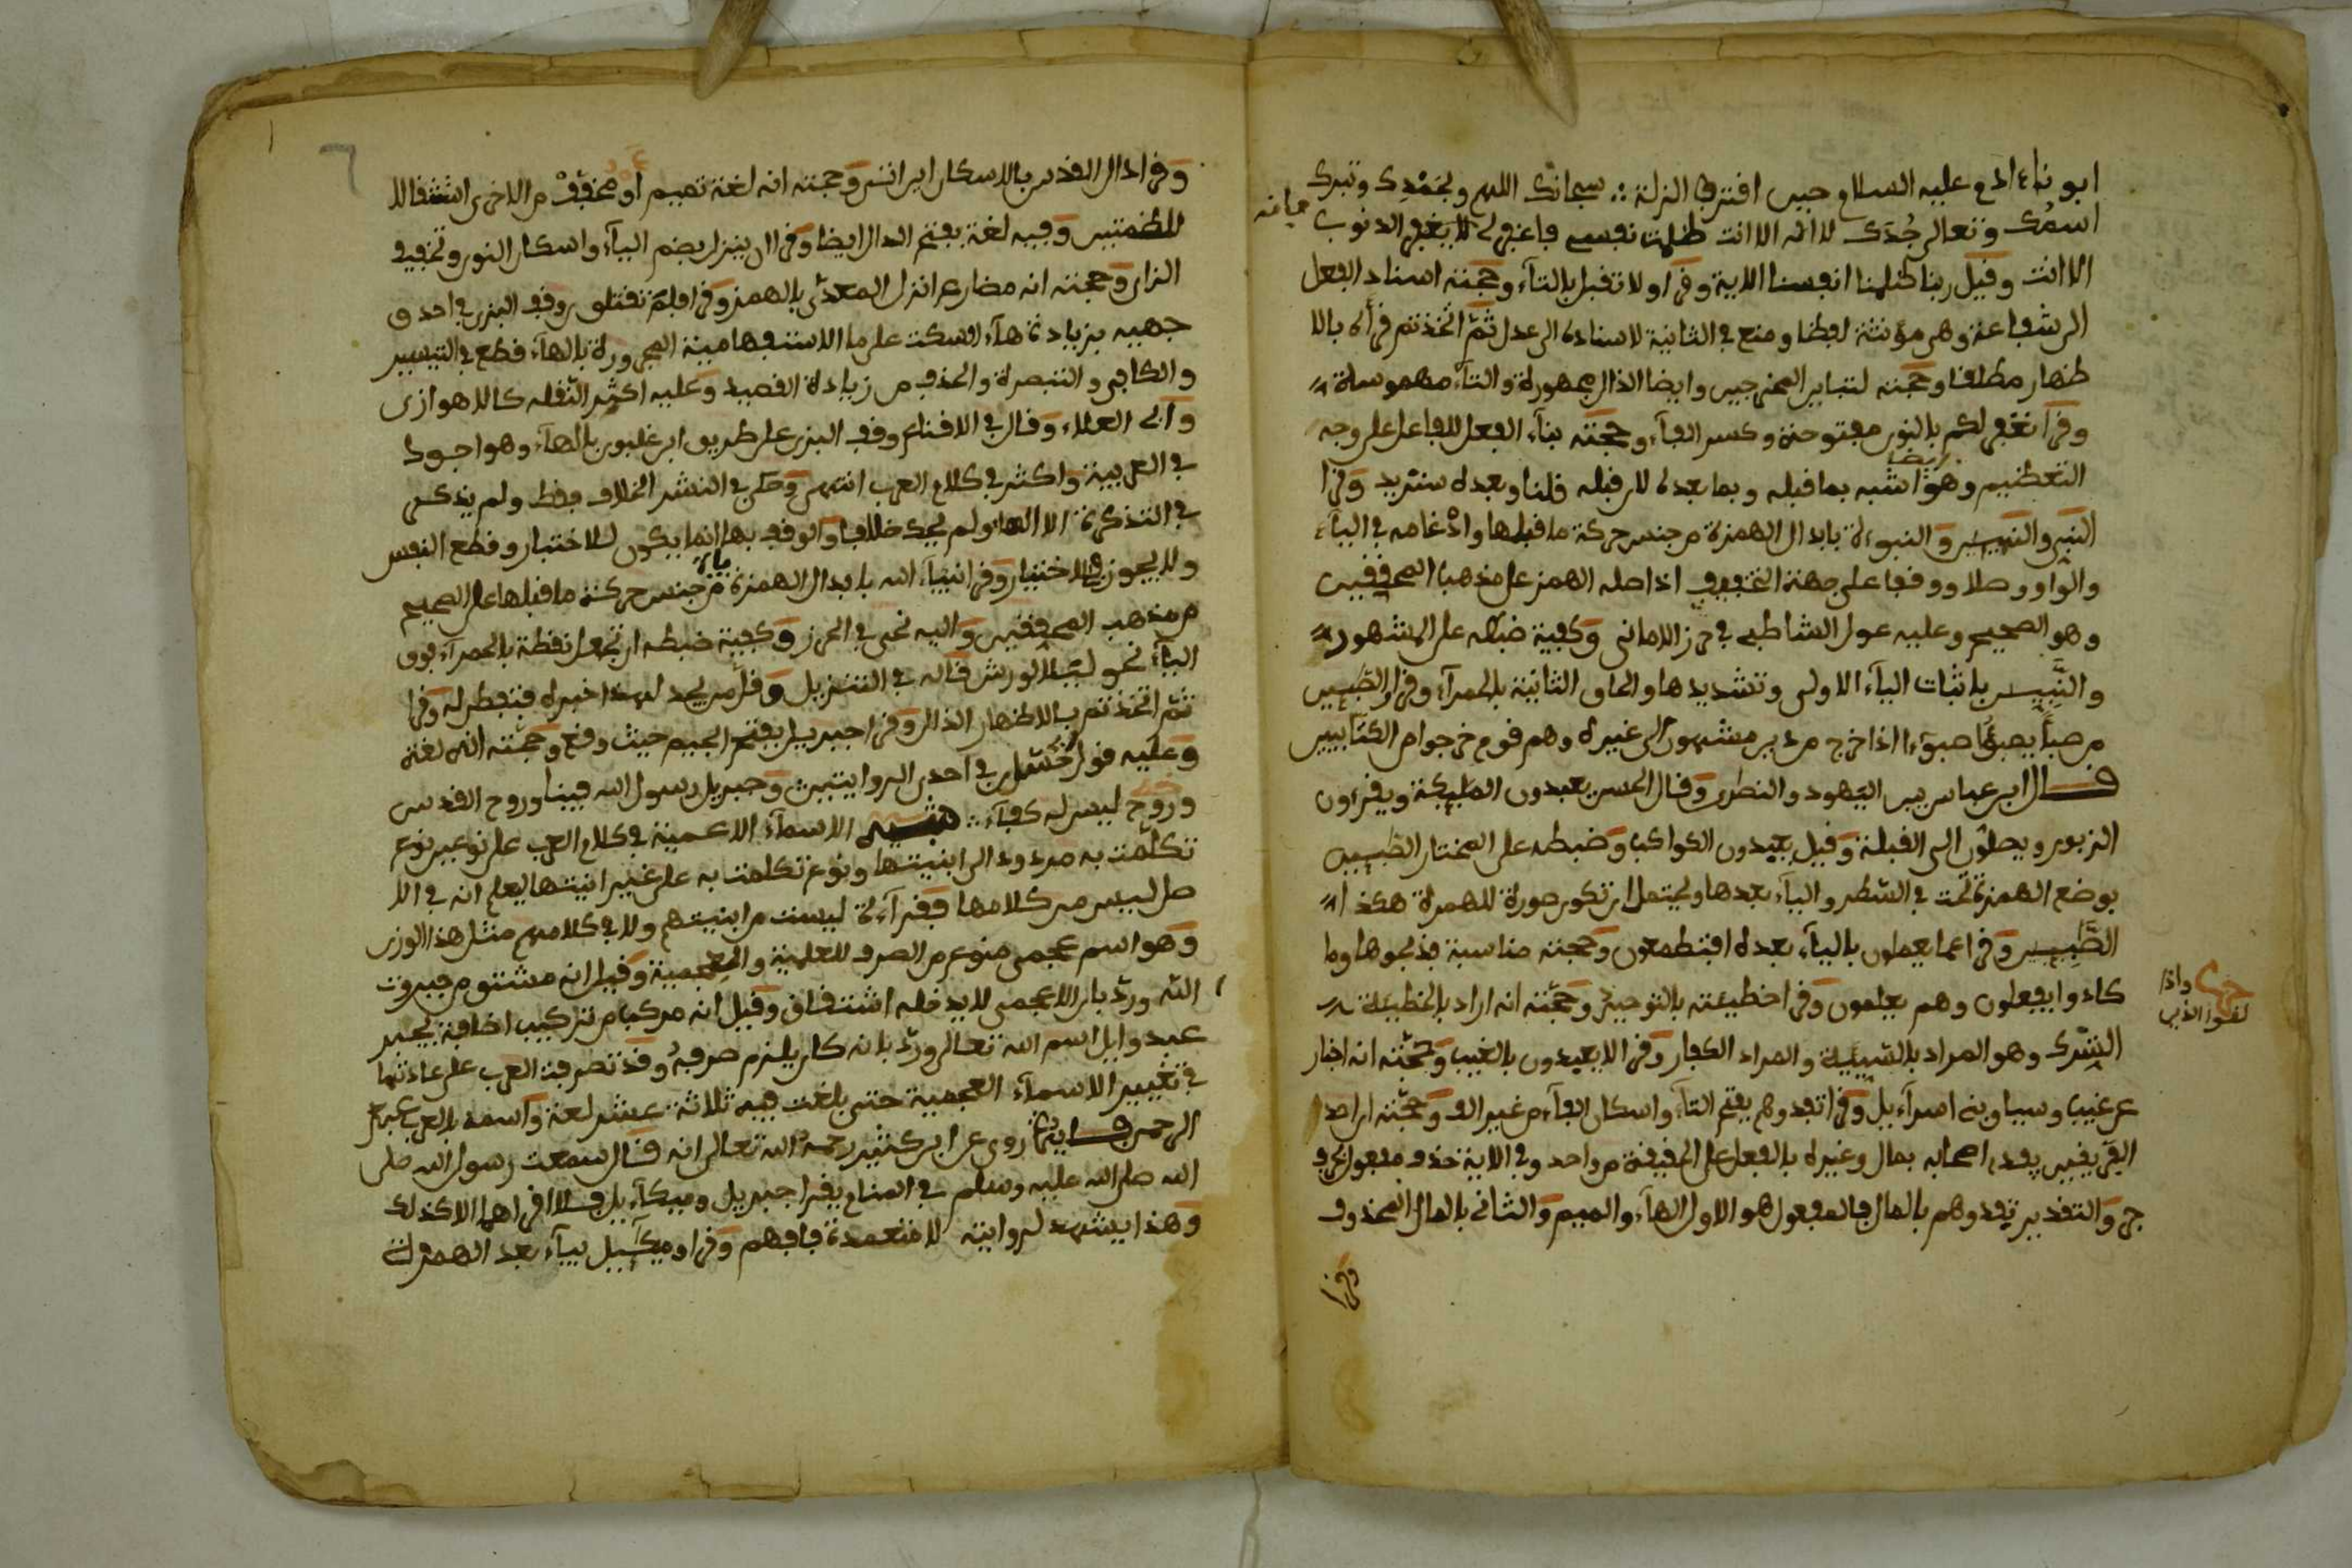 ابونا ءادم عليه السلام حين اقترف الزلة ∴ سبحانك اللهم وبحمدك وتبرك
اسمك وتعالى جدك لا اله الا انت ظلمت نفسي فاغفر لي فلا يغفر الذنوب
الا انت وقيل ربنا ظلمنا انفسنا الاية وقرا ولا تقبل بالتاء وحجته اسناد الفعل
الى شفاعة وهي مؤنثة لفظا ومنع في الثانية لاسناده الى عدل ثم اتخذتم قرأه بالا
ظهار مطلقا وحجته لتباين المخرجين وايضا الذال مجهورة والتاء مهموسة
وقرا نغفر لكم بالنون مفتوحة وكسر الفاء وحجته بناء الفعل للفاعل على وجه
التعظيم وهو ايضا اشبه بما قبله وبما بعده لان قبله قلنا وبعده سنزيد وقرا
النبي والنبيين والنبوءة بابدال الهمزة من جنس حركة ما قبلها وادغامه في الياء
والواو وصلا ووقفا على جهة التخفيف اذ اصله الهمز على مذهب المحققين
وهو الصحيح وعليه عول الشاطبي في حرز الاماني وكيفية ضبطه على المشهور
والنبيين باثبات الياء الاولى وتشديدها والحاق الثانية بالحمراء وقرا والصبين
من صبأ يصبؤ صبوءا اذا خرج من دين مشهور الى غيره وهم قوم خرجوا من الكتابيين
قال ابن عباس بين اليهود والنصرى وقال الحسن يعبدون المليكة ويقرءون
الزبور ويصلون الى القبلة وقيل يعبدون الكواكب وضبطه على المختار الصبين
بوضع الهمزة تحت في السطر والياء بعدها ويحتمل ان تكون صورة للهمزة هكذا
الصبين وقرا عما يعملون بالياء بعده افتطمعون وحجته مناسبة فذبحوها وما
كادوا يفعلون وهم يعلمون وقرا خطيئته بالتوحيد وحجته انه اراد بالخطيئة
واذا
لقوا الذين
الشرك وهو المراد بالسيئة والمراد الكفار وقرا لا يعبدون بالغيب وحجته انه اخبار
عن غيب وسياق بني اسراءيل وقرا تفدوهم بفتح التاء واسكان الفاء من غير الف وحجته ان احد
الفريقين يفدي اصحابه بمال وغيره بالفعل على الحقيقة من واحد وفي الاية حذف مفعول بحرف
جر والتقدير تفدوهم بالمال فالمفعول هو الاول الهاء والميم والثاني بالمال المحذوف
وقرا
وقرا دال القدس بالاسكان اين اتى وحجته انه لغة تميم او مخفف من الاخرى استثقالا
للضمتين وفيه لغة بفتح الدال ايضا وقرا ان ينزل بضم الياء واسكان النون وتخفيف
الزاي وحجته انه مضارع انزل المعدى بالهمز وقرا فلم تقتلون ووقف البزي في احد و
جهيه بزيادة هاء السكت على ما الاستفهامية المجرورة بالهاء قطع في التيسير
والكافي والتبصرة والحذف من زيادة القصيد وعليه اكثر النقلة كالاهوازي
وابي العلاء وقال في الاقناع وقف البزي على طريق ابن غلبون بالهاء وهو اجود
في العربية واكثر في كلام العرب انتهى وحكى في النشر الخلاف فقط ولم يذكر
في التذكرة الا الهاء ولم يحك خلافا والوقف بها انما يكون للاختبار وقطع النفس
ولا يجوز في الاختيار وقرا انبياء الله بابدال الهمزة ياء من جنس حركة ما قبلها على الصحيح
من مذهب المحققين واليه نحى في الحرز وكيفية ضبطه ان تجعل نقطة بالحمراء فوق
الياء نحو ليلا لورش قاله في التنزيل وقل من يجد لهذا خبره فتفطن له وقرا
ثم اتخذتم بالاظهار الذال وقرا جبريل بفتح الجيم حيث وقع وحجته انه لغة
وعليه قول حسان في احدى الروايتين وجبريل رسول الله فينا وروح القدس
وروح ليس له كفاء ∴ تنبيه الاسماء الاعجمية في كلام العرب على نوعين نوع
تكلمت به مردود الى ابنيتها ونوع تكلمت به على غير ابنيتها ليعلم انه في الا
صل ليس من كلامها فقراءة ليست من ابنيتهم ولا في كلامهم مثل هذا الوزن
وهو اسم عجمي ممنوع من الصرف للعلمية والعجمية وقيل انه مشتق من جبروت
الله ورد بان الاعجمي لا يدخله اشتقاق وقيل انه مركب من تركيب اضافة بجبر
عبد وايل اسم الله تعالى ورد بانه كان يلزم صرفه وقد تصرفت العرب على عادتها
في تغيير الاسماء العجمية حتى بلغت فيه ثلاثة عشر لغة واسمه بالعربي عبد
الرحمن فايدة روي عن ابن كثير رحمه الله تعالى انه قال سمعت رسول الله صلى
الله صلى الله عليه وسلم في المنام يقرا جبريل وميكاءيل فلا اقراهما الا كذلك
وهذا يشهد لروايته لا متعمدة فافهم وقرا وميكاءيل بياء بعد الهمزة